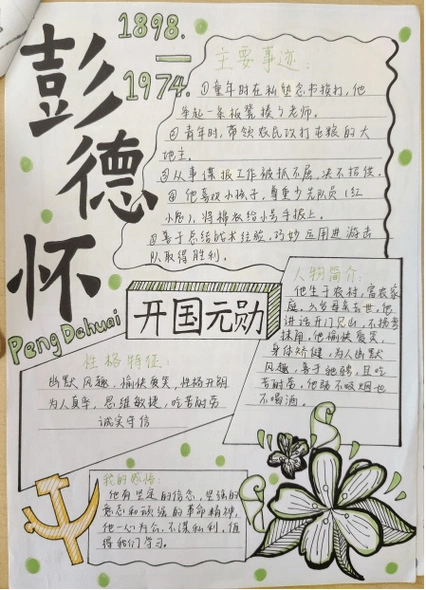 彭德怀
1898.
1974.
Peng Dehuai
主要事迹:
①童年时在私塾念书挨打,他
举起一条板凳揍了老师。
②青年时,带领农民攻打屯粮的大
地主。
③从事谍报工作被抓不屈,决不招供。
④他喜欢小孩子,尊重少先队员(红
小鬼),将棉衣给小号手披上。
⑤善于总结战术经验,巧妙运用进游击
队取得胜利。
开国元勋
人物简介:
他生于农村,富农家
庭,六岁母亲去世,他
讲话开门见山,不拐弯
抹角,他愉快爱笑,
身体矫健,为人幽默
风趣,善于驰骋,且吃
苦耐劳,他既不吸烟也
不喝酒。
性格特征:
幽默风趣,愉快爱笑,性格开朗
为人真率,思维敏捷,吃苦耐劳
诚实守信
我的感悟:
他有坚定的信念,坚强的
意志和顽强的革命精神,
他一心为公,不谋私利,值
得我们学习。